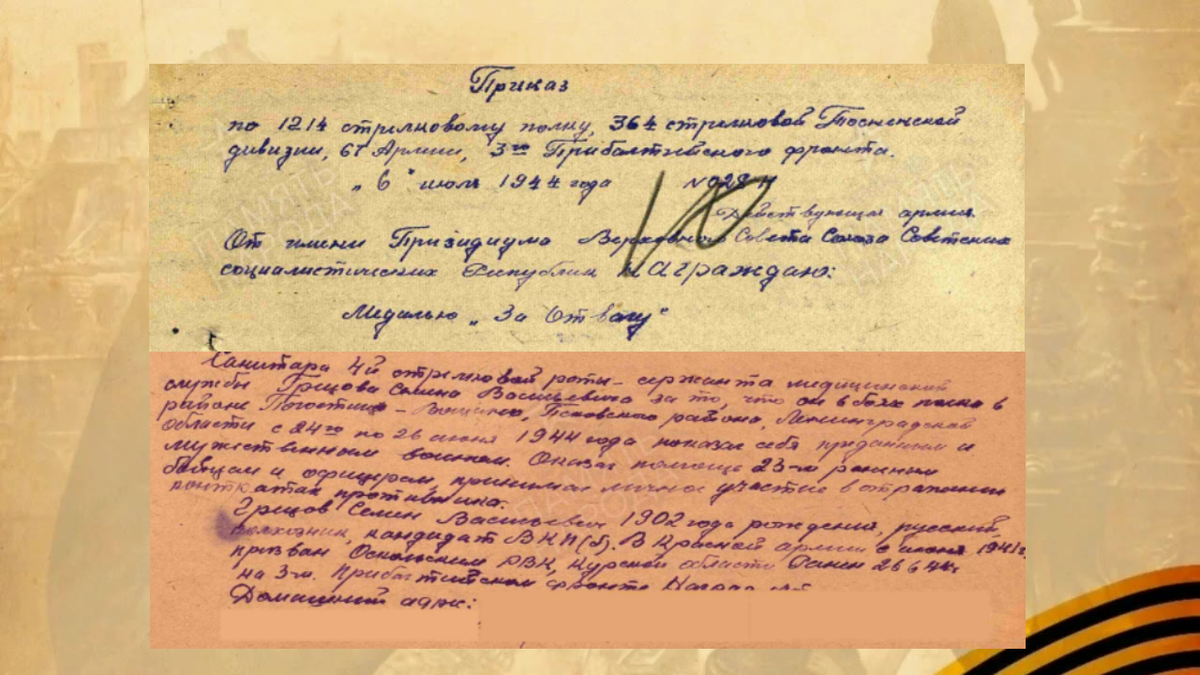 Приказ
по 1214 стрелковому полку, 364 стрелковой Тосненской
дивизии, 67 Армии, 3го Прибалтийского фронта.
„6" июля 1944 года №028-н
Действующая армия.
От имени Призидиума Верховного Совета Союза Советских
социалистических Республик Награждаю:
Медалью „За Отвагу"
Санитара 4й стрелковой роты - сержанта медицинской
службы Грецова Семена Васильевича за то, что он в боях полка в
районе - Псковского района, Ленинградской
области с 24го по 26 июня 1944 года показал себя преданным и
мужественным воином. Оказал помощь 23-м раненым
бойцам и офицерам, принимал личное участие в отражении
контратак противника.
Грецов Семен Васильевич 1902 года рождения, русский,
колхозник, кандидат ВКП(б). В Красной армии с июня 1941г.
призван Оскольским РВК, Курской области Ранен
на 3-м Прибалтийском фронте
Домашний адрес:
ПАМЯТЬ
НАРОДА